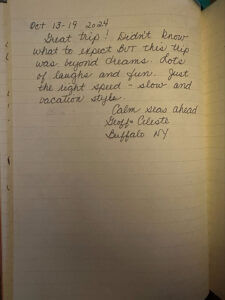 Oct 13-19 2024
Great trip! Didn't know
what to expect BUT this trip
was beyond dreams. Lots
of laughs and fun. Just
the right speed - slow and
vacation style.
Calm seas ahead
Geoff & Celeste
Buffalo NY